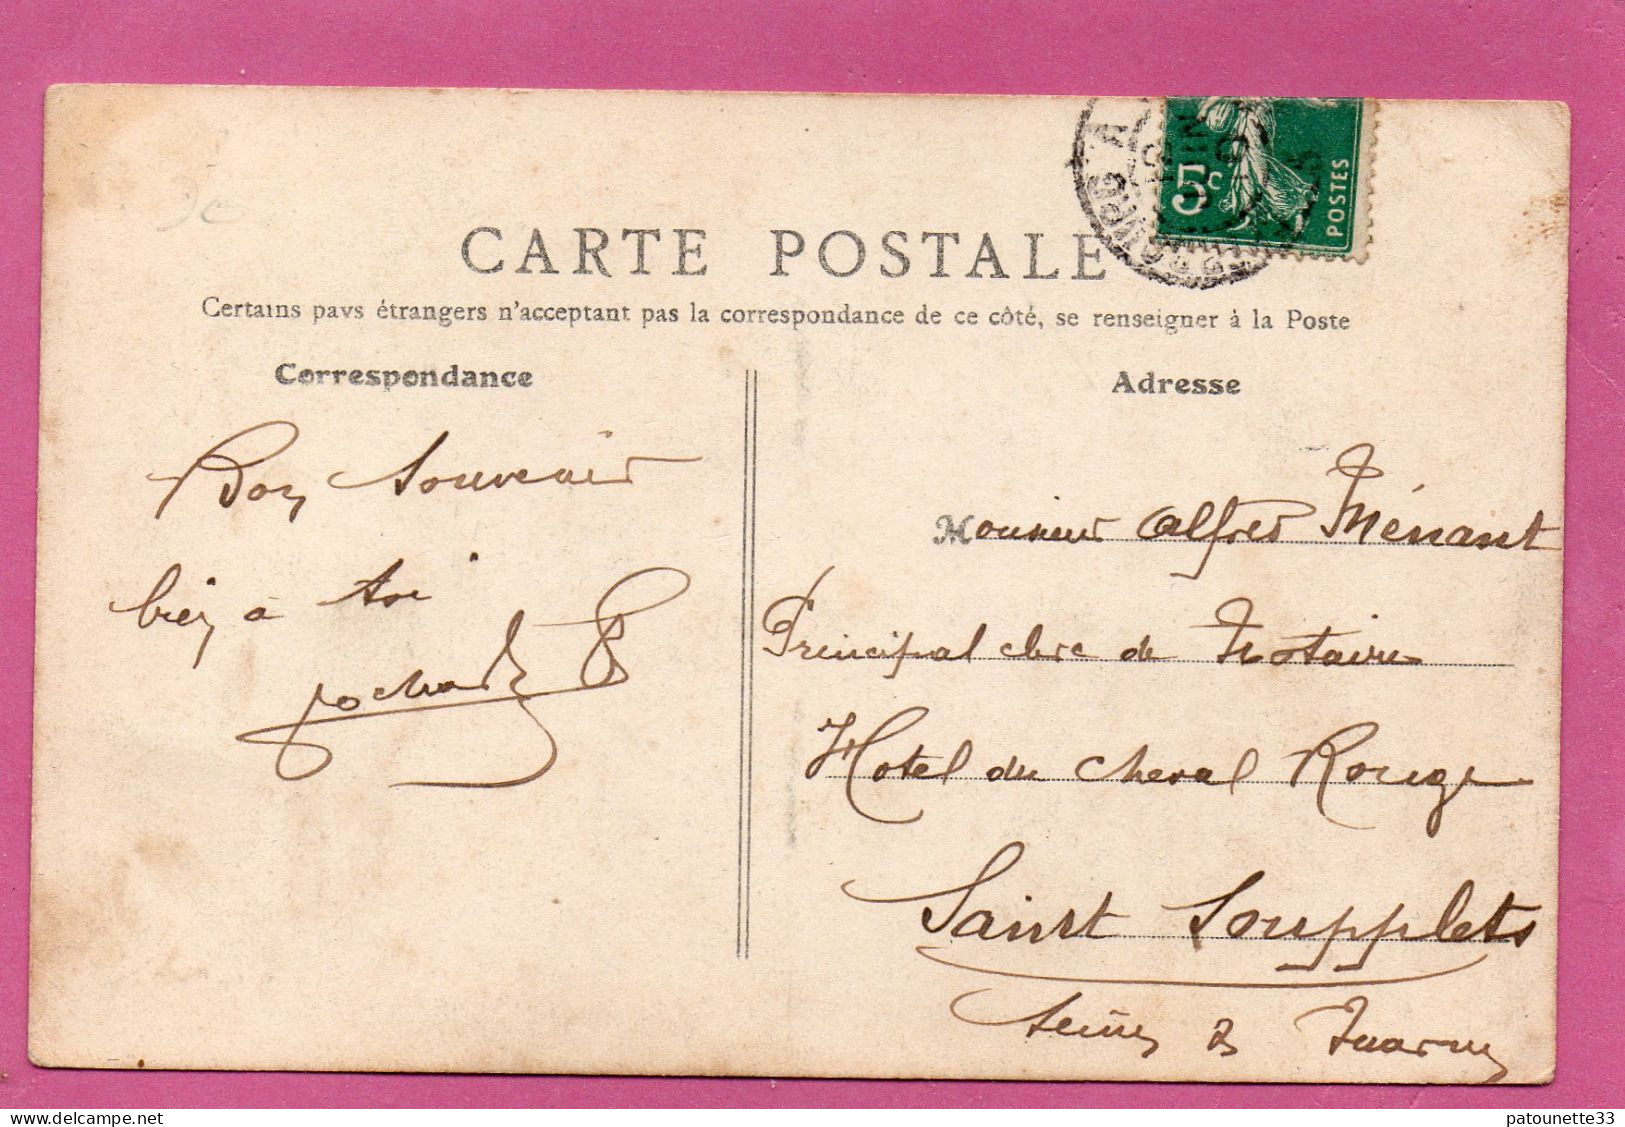 CARTE POSTALE
Certains pays étrangers n'acceptant pas la correspondance de ce côté, se renseigner à la Poste
Correspondance
Adresse
Bon Souvenir
bien à toi
Monsieur Alfred Ménant
Principal clerc de Notaire
Hotel du Cheval Rouge
Saint Soupplets
Seine & Marne
5c
POSTES
patounette33